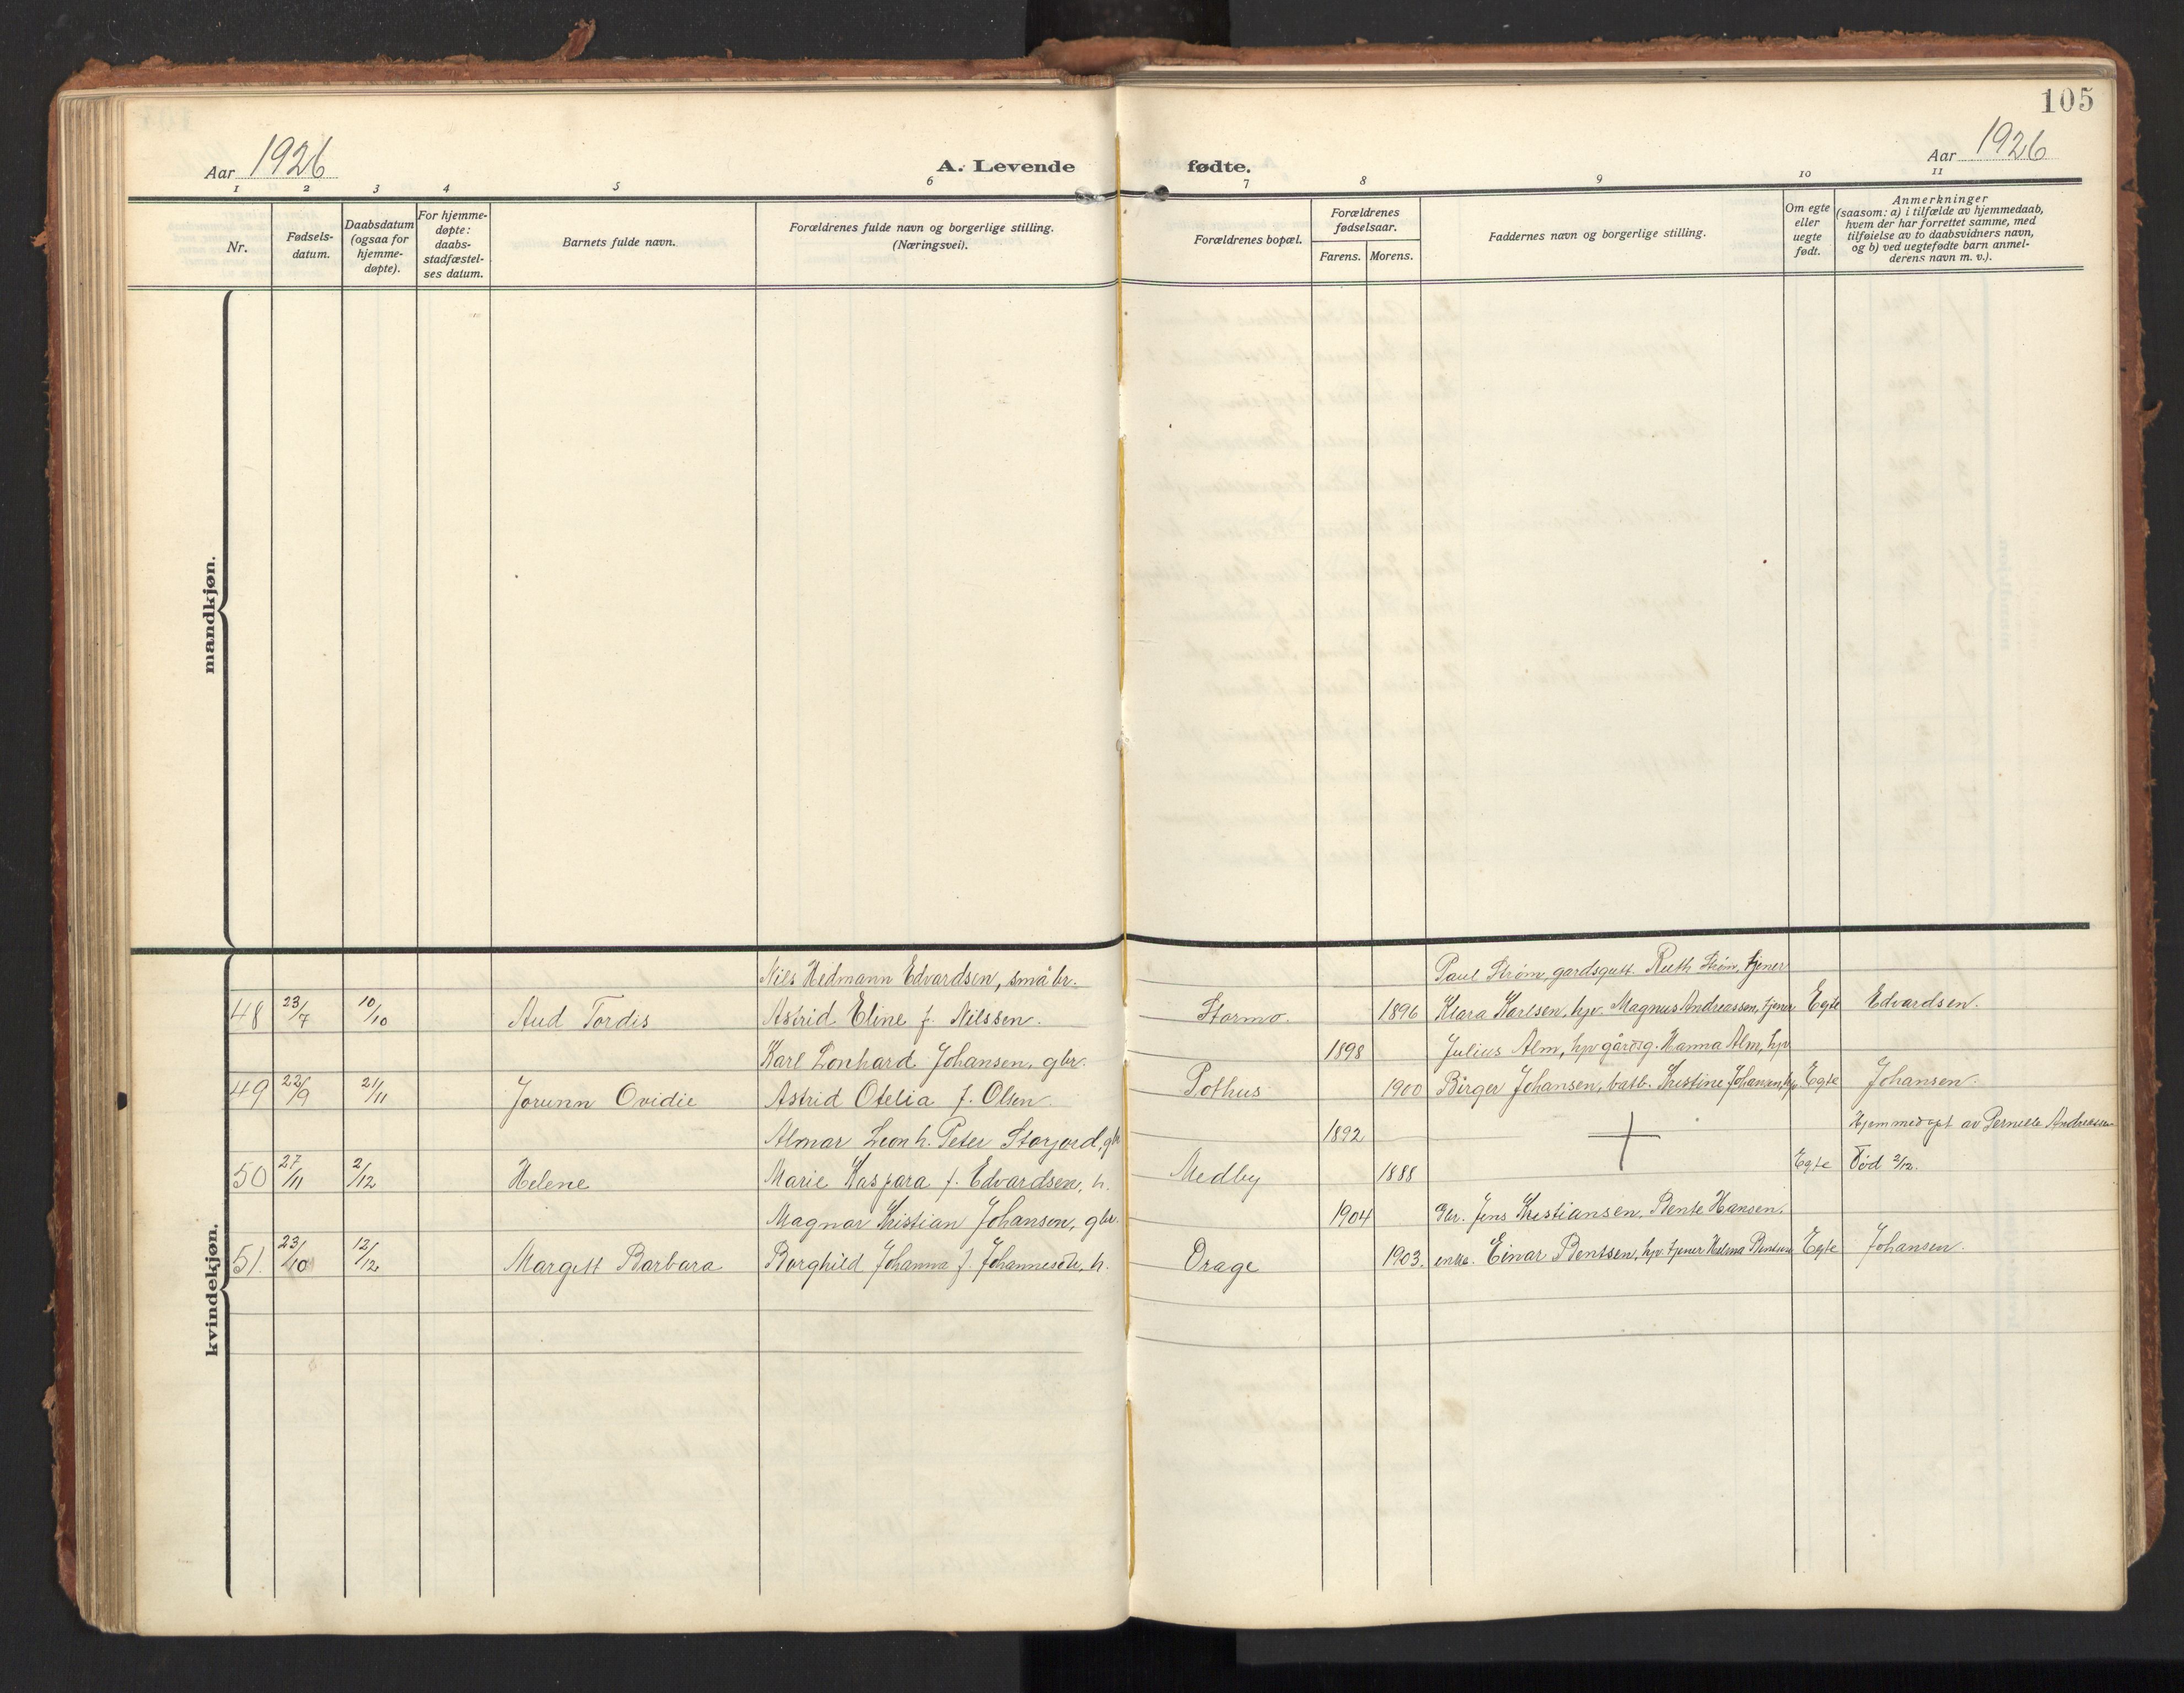 105
Aar 1926
A. Levende fødte.
Aar 1926
1 2 3 4 5 6 7 8 9 10 11
Nr.
Fødsels-
datum.
Daabsdatum
(ogsaa for
hjemme-
døpte).
For hjemme-
døpte:
daabs-
stadfæstel-
ses datum.
Barnets fulde navn.
Forældrenes fulde navn og borgerlige stilling.
(Næringsvei).
Forældrenes bopæl.
Forældrenes
fødselsaar.
Farens. Morens.
Faddernes navn og borgerlige stilling.
Om egte
eller
uegte
født.
Anmerkninger
(saasom: a) i tilfælde av hjemmedaab,
hvem der har forrettet samme, med
tilføielse av to daabsvidners navn,
og b) ved uegtefødte barn anmel-
derens navn m. v.).
mandkjøn.
kvindekjøn.
Nils Hedmann Edvardsen, småbr. Paul Strøm, gardsgutt. Ruth Strøm, tjener
48 23/7 10/10 Aud Tordis Astrid Eline f. Nilssen. Stormo. 1896 Klara Karlsen, hjv. Magnus Andreassen, tjener Egte Edvardsen.
Karl Lonhard Johansen, gbr. 1898 Julius Alm, hjv gårdsg. Hanna Alm, hjv
49 22/9 21/11 Jorunn Ovidie Astrid Otelia f. Olsen. Pothus 1900 Birger Johansen, batb. Kristine Johansen, hjv. Egte Johansen.
Almar Leonh. Peter Storjord, gbr 1892 Hjemmedøpt av Pernelle Andreassen
50 27/11 2/12 Helene Marie Kaspara f. Edvardsen, h. Medby 1888 Egte Død 2/12.
Magnar Kristian Johansen, gbr. 1904 Gbr. Jens Kristiansen, Bente Hansen,
51. 23/10 12/12 Margitt Barbara Borghild Johanna f. Johannesdtr, h. Drage 1903. enke. Einar Bentsen, hjv. tjener Helma Bentsen Egte Johansen.